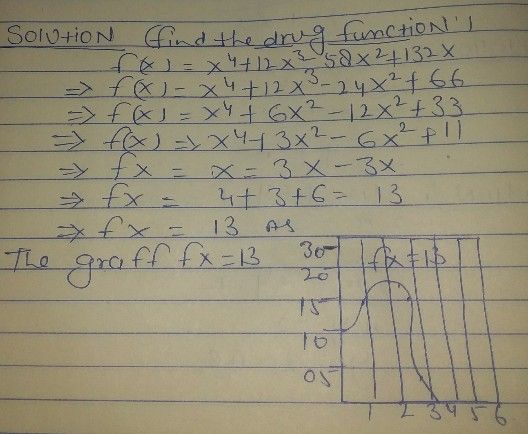 SOLUTION (find the drug function")
f(x) = x⁴+12x³-58x²+132x
⇒ f(x) = x⁴+12x³-24x²+66
⇒ f(x) = x⁴+6x²-12x²+33
⇒ f(x) ⇒ x⁴+3x²-6x²+11
⇒ fx = x = 3x-3x
⇒ fx = 4+3+6= 13
⇒ fx = 13 as
The graff fx=13
30
fx=13
20
15
10
05
1 2 3 4 5 6